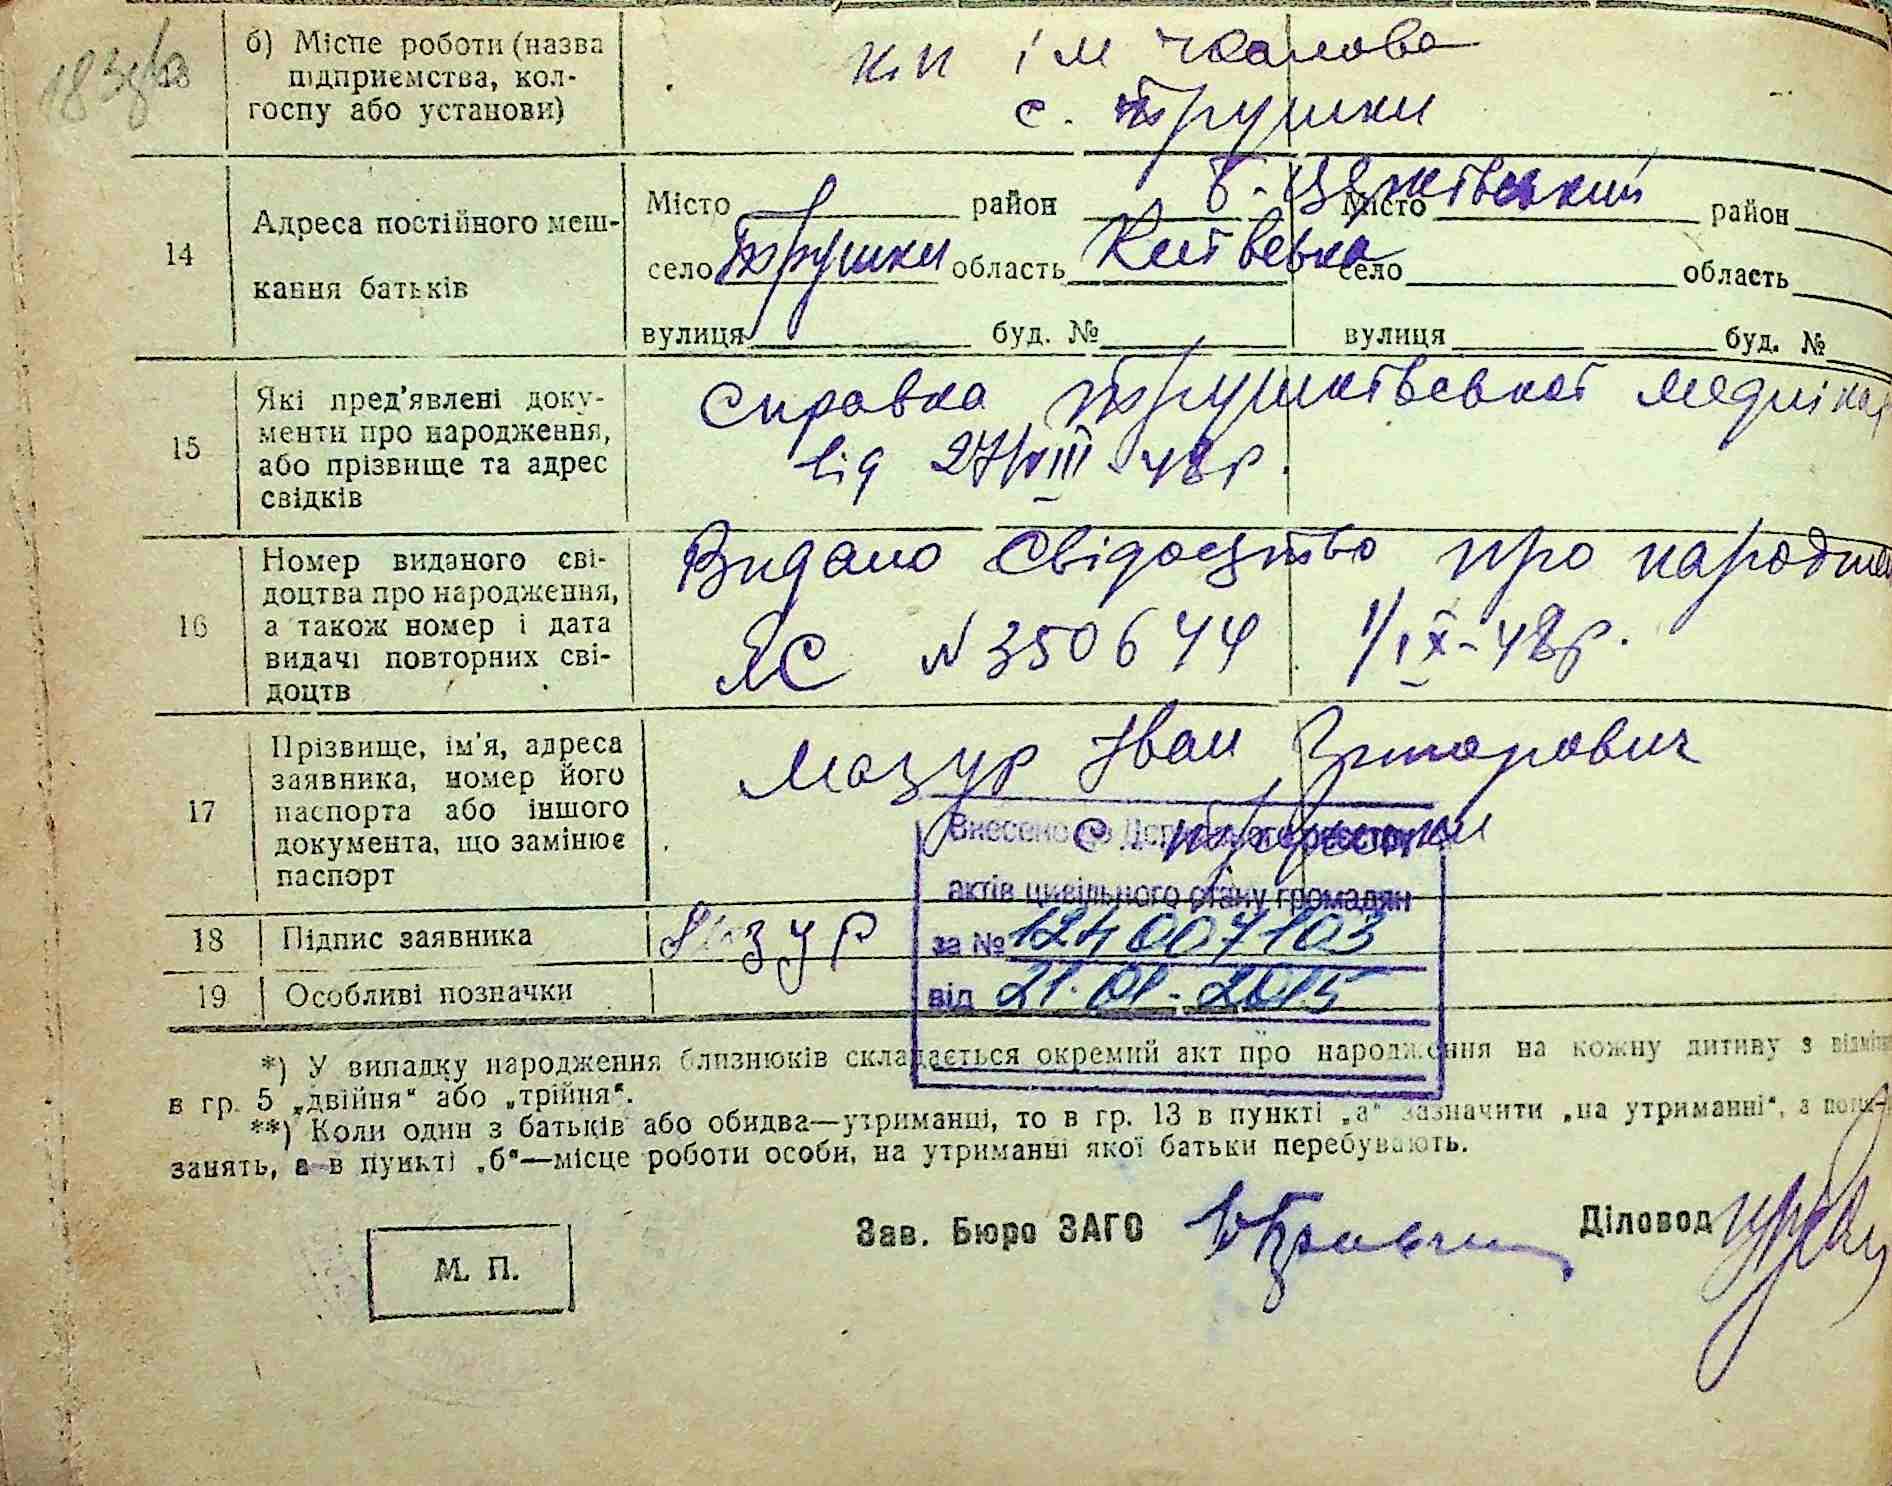 183
б) Місце роботи (назва
підприємства, кол-
госпу або установи)
к.п ім Чкалова
с. Трушки
14
Адреса постійного меш-
кання батьків
Місто район Б-Церківський Місто район
село Трушки область Київська село область
вулиця буд. № вулиця буд. №
15
Які пред'явлені доку-
менти про народження,
або прізвище та адрес
свідків
Справка Трушківської
від 27/VIII-48р.
16
Номер виданого сві-
доцтва про народження,
а також номер і дата
видачі повторних сві-
доцтв
Видано Свідоцтво про народжен
ЯС N 350644 1/IX-48р.
17
Прізвище, ім'я, адреса
заявника, номер його
паспорта або іншого
документа, що замінює
паспорт
Мазур Іван
с. Трушки
Внесено до Державного реєстру
актів цивільного стану громадян
за № 124007103
від 21.01.2015
18 Підпис заявника Мазур
19 Особливі позначки
*) У випадку народження близнюків складається окремий акт про народження на кожну дитину з відміткою
в гр. 5 „двійня“ або „трійня“.
**) Коли один з батьків або обидва—утриманці, то в гр. 13 в пункті „а“ зазначити „на утриманні“, з
занять, а в пункті „б“—місце роботи особи, на утриманні якої батьки перебувають.
Зав. Бюро ЗАГС Діловод
М. П.